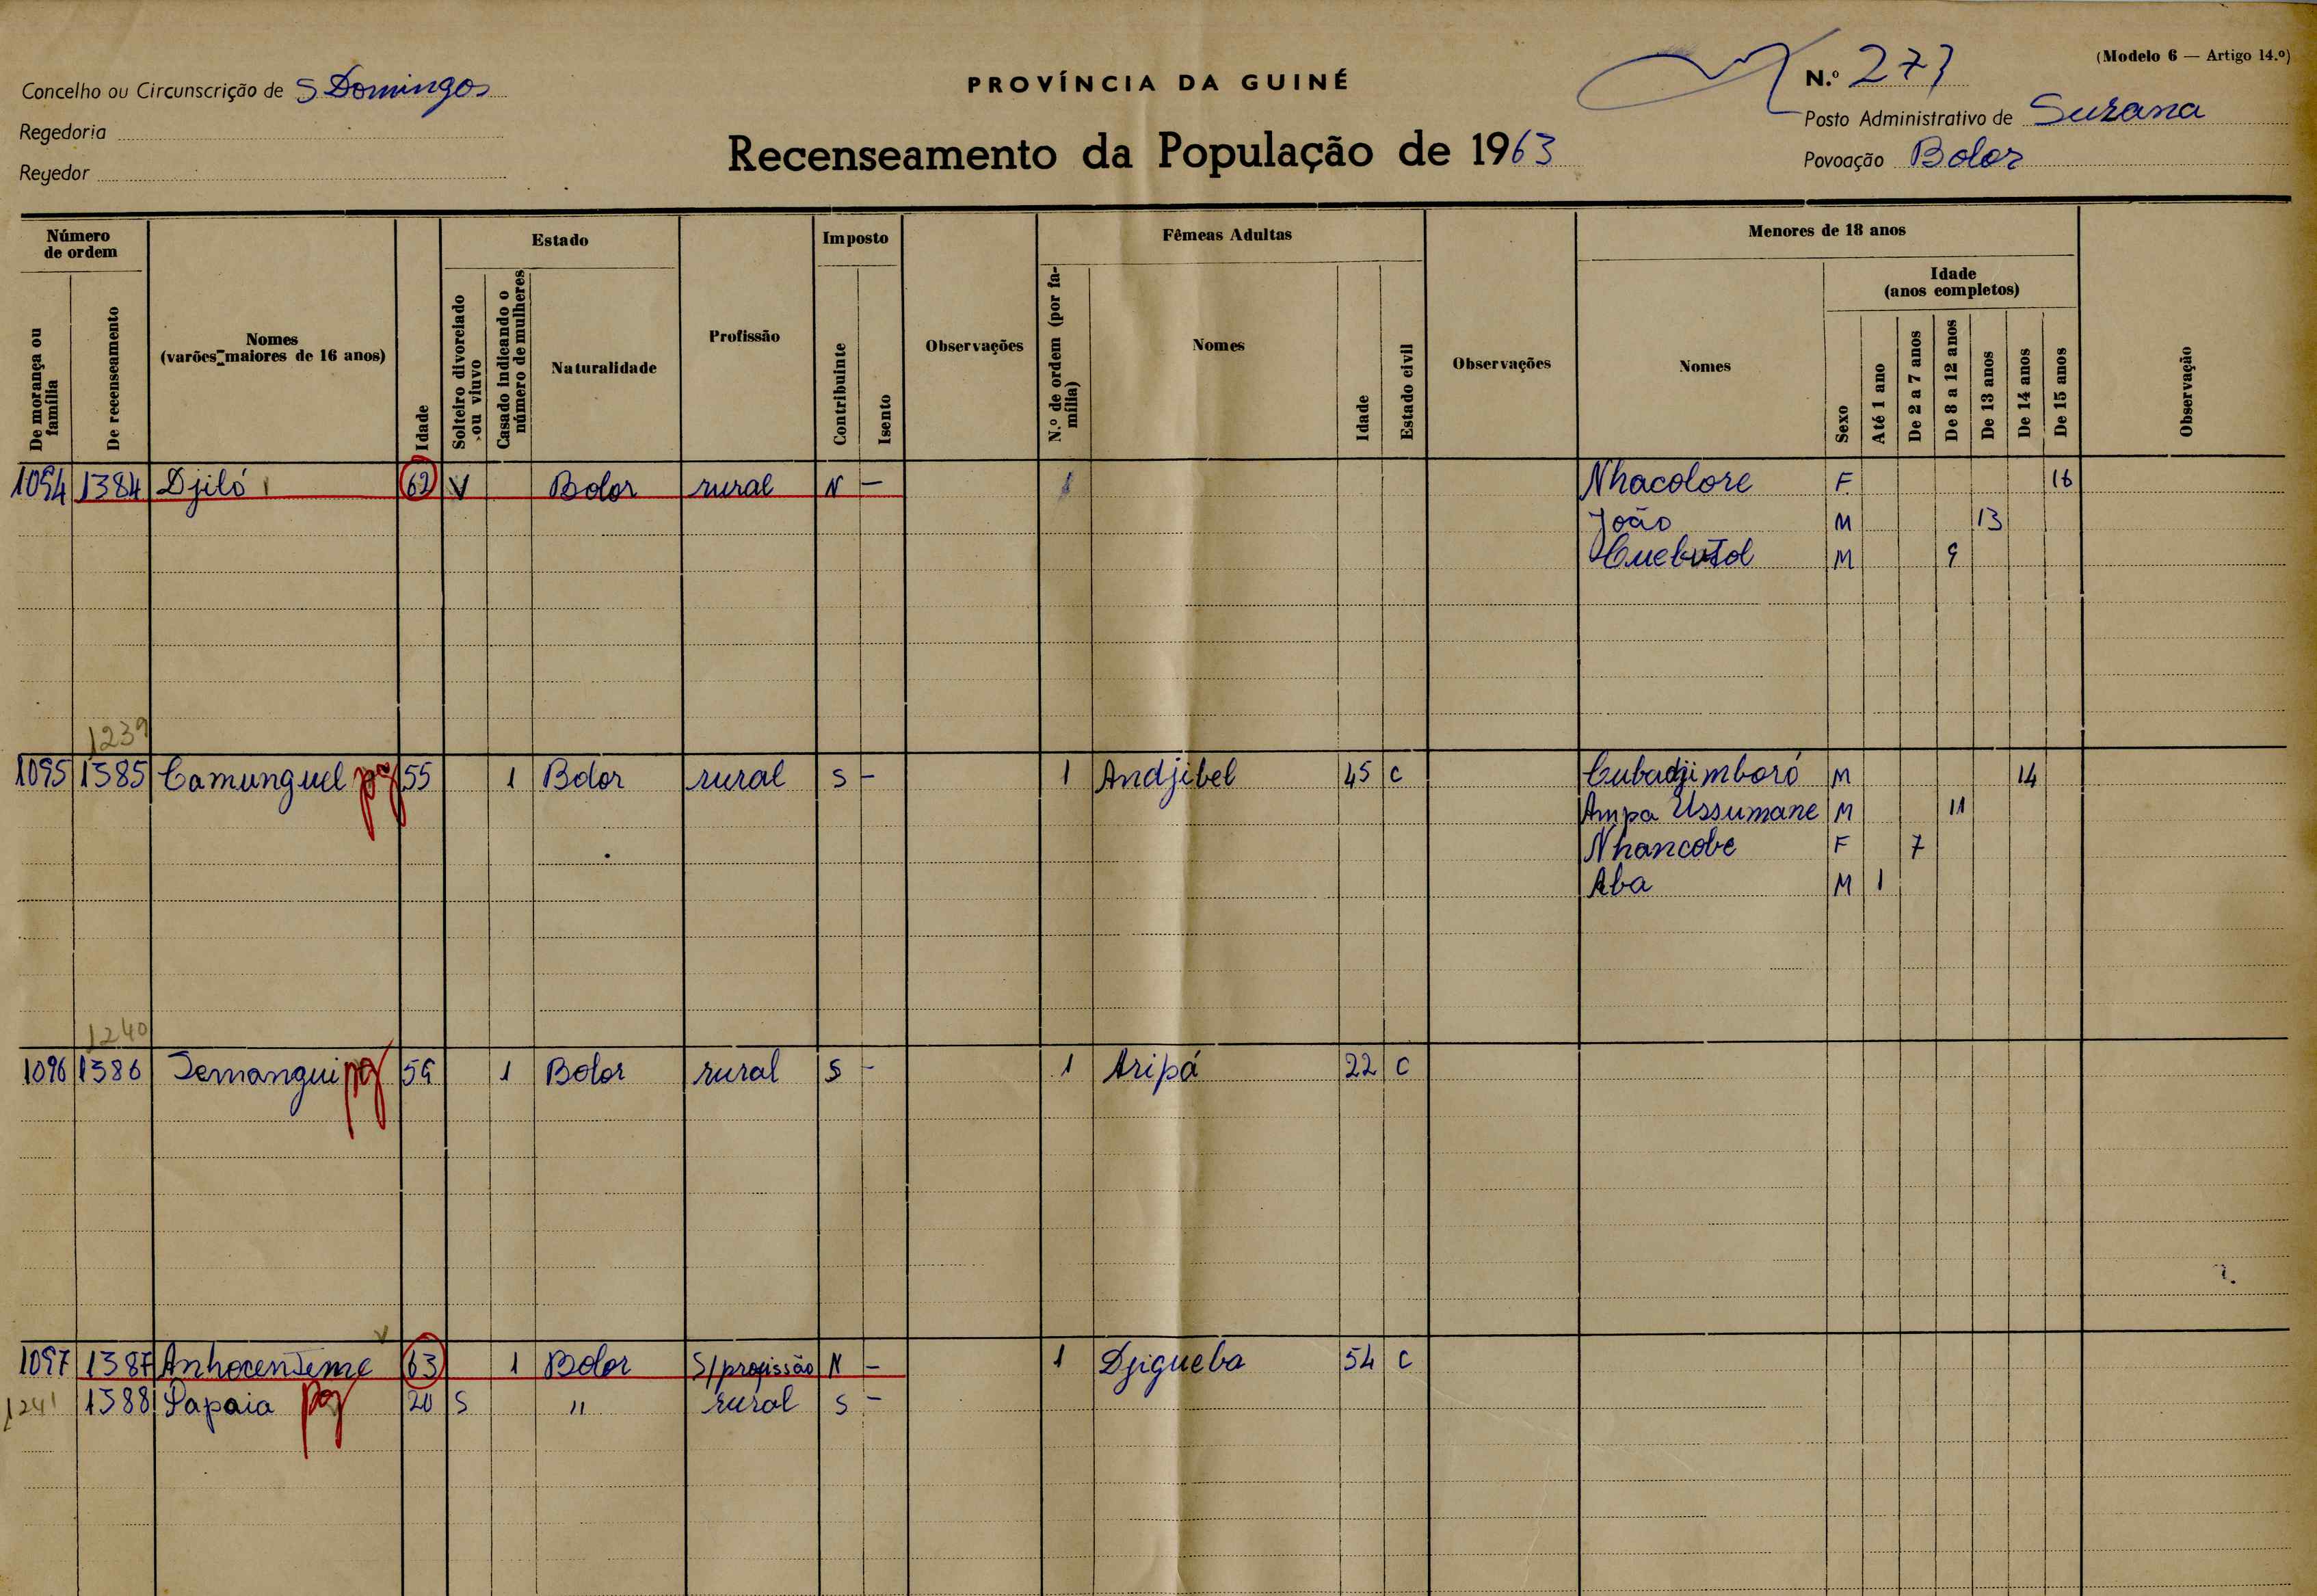 (Modelo 6 — Artigo 14.º)
Concelho ou Circunscrição de S Domingos
PROVÍNCIA DA GUINÉ
N.º 273
Regedoria
Posto Administrativo de Suzana
Recenseamento da População de 1963
Regedor
Povoação Bolor
Número de ordem
De morança ou família
De recenseamento
Nomes (varões maiores de 16 anos)
Idade
Estado
Solteiro divorciado ou viuvo
Casado indicando o número de mulheres
Naturalidade
Profissão
Imposto
Contribuinte
Isento
Observações
Fêmeas Adultas
N.º de ordem (por família)
Nomes
Idade
Estado civil
Observações
Menores de 18 anos
Nomes
Sexo
Idade (anos completos)
Até 1 ano
De 2 a 7 anos
De 8 a 12 anos
De 13 anos
De 14 anos
De 15 anos
Observação
1094 1384 Djiló 62 V Bolor rural N — 1 Nhacolore F 16
João M 13
M 9
1239
1095 1385 Camunguel pg 55 1 Bolor rural S — 1 Andjibel 45 C Cubadjimboró M 14
Ampa Ussumane M 11
Nhancobe F 7
Aba M 1
1240
1096 1386 Jemangui pg 59 1 Bolor rural S — 1 Aripá 22 C
1097 1387 63 1 Bolor S/profissão N — 1 Djigueba 54 C
1241 1388 Papaia pg 20 S " rural S —